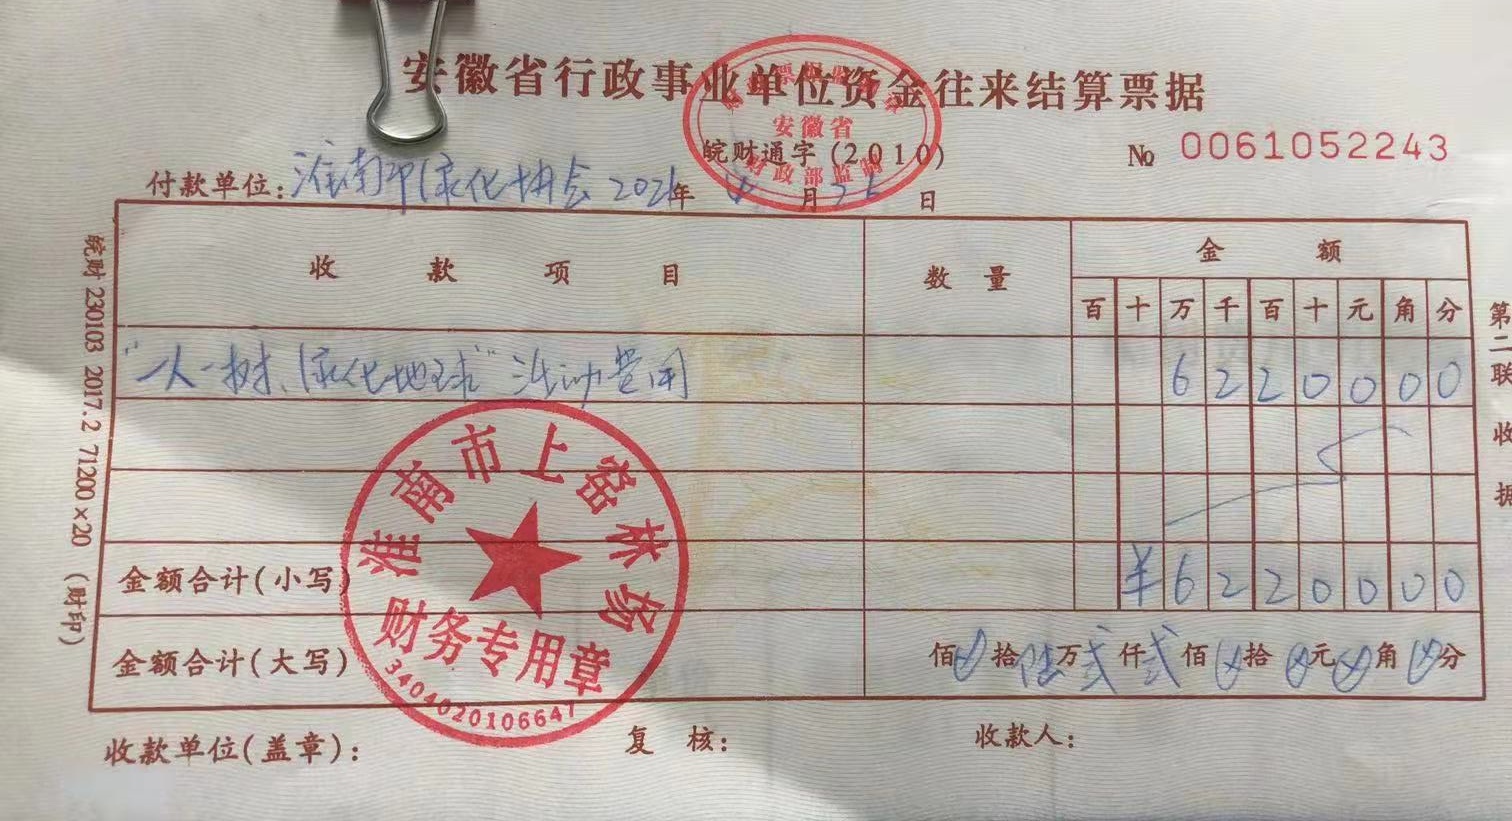 安徽省行政事业单位资金往来结算票据
安徽省
财政部监制
皖财通字(2010)
№ 0061052243
付款单位:淮南市绿化协会 2021年 月 日
收款项目 数量 金额
百 十 万 千 百 十 元 角 分
"一人一树、绿化地球"活动费用 6 2 2 0 0 0 0
金额合计(小写) ¥ 6 2 2 0 0 0 0
金额合计(大写) 佰⊗拾陆万弍仟弍佰⊗拾⊗元⊗角⊗分
收款单位(盖章): 复核: 收款人:
淮南市上窑林场
财务专用章
3404020106647
皖财 230103 2017.2 71200×20 (财印)
第二联 收据